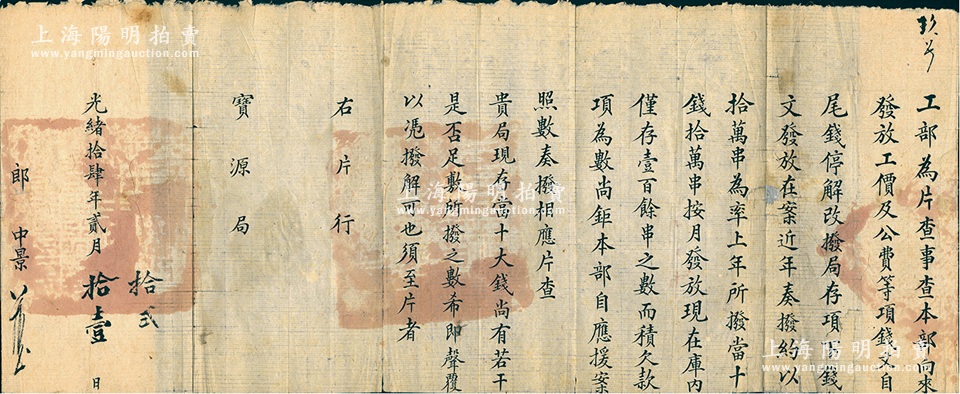 玖号
工部為片查事查本部向來
發放工價及公費等項錢文自
尾錢停解改撥局存項下錢
文發放在案近年奏撥約以
拾萬串為率上年所撥當十
錢拾萬串按月發放現在庫內
僅存壹百餘串之數而積欠款
項為數尚鉅本部自應援案
照數奏撥相應片查
貴局現存當十大錢尚有若干
是否足敷所撥之數希即聲覆
以憑撥解可也須至片者
右片行
寶源局
拾弍
光緒拾肆年貳月拾壹日
郎中景
上海陽明拍賣
www.yangmingauction.com
上海陽明拍賣
www.yangmingauction.com
上海陽明拍賣
www.yangmingauction.com
上海陽明拍賣
www.yangmingauction.com